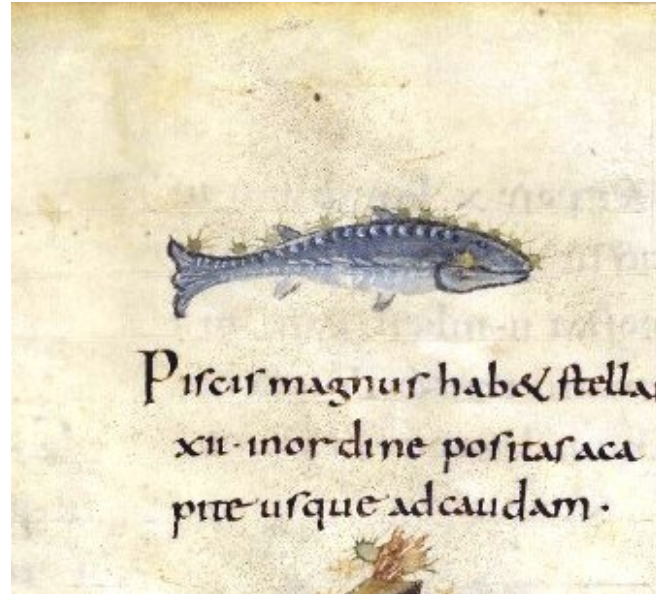 Piscis magnus hab& stellas
xii·inordine positas aca
pite usque adcaudam·